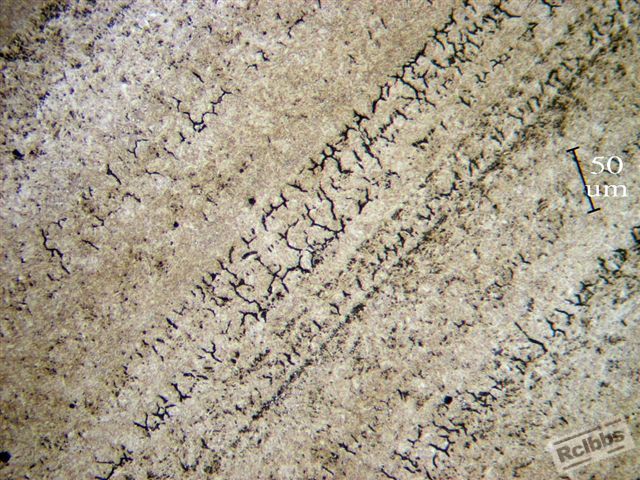 50
um
Rclbbs